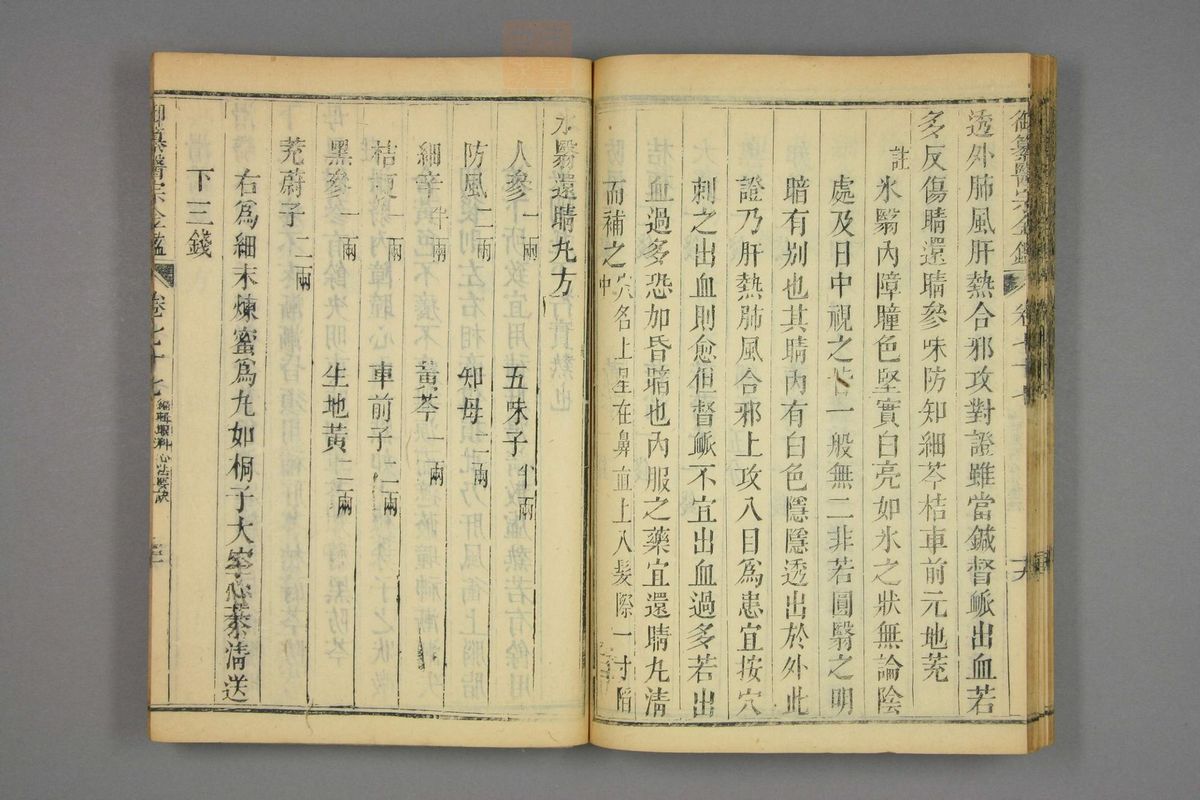 御纂醫宗金鑑 卷七十七
透外肺風肝熱合邪攻對證雖當鍼督脈出血若
多反傷睛還睛參味防知細芩桔車前元地茺
註氷翳內障瞳色堅實白亮如氷之狀無論陰
處及日中視之皆一般無二非若圓翳之明
暗有別也其睛內有白色隱隱透出於外此
證乃肝熱肺風合邪上攻入目爲患宜按穴
刺之出血則愈但督脈不宜出血過多若出
血過多恐加昏暗也內服之藥宜還睛丸淸
而補之穴名上星在鼻直上入髮際一寸陷中
氷翳還睛丸方
人參一兩 五味子半兩
防風二兩 知母二兩
細辛半兩 黃芩一兩
桔更一兩 車前子二兩
黑參一兩 生地黃二兩
茺蔚子二兩
右爲細末煉蜜爲丸如桐子大空心茶淸送
下三錢
御纂醫宗金鑑 卷七十七 編輯眼科心法要訣